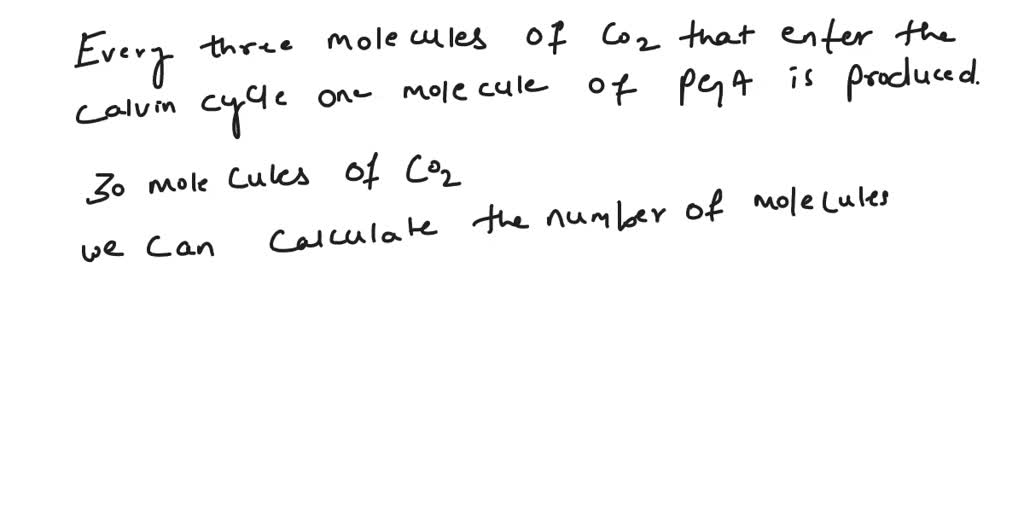 Every three molecules of CO2 that enter the
Calvin cycle one molecule of PGA is produced.
30 molecules of CO2
we can calculate the number of molecules